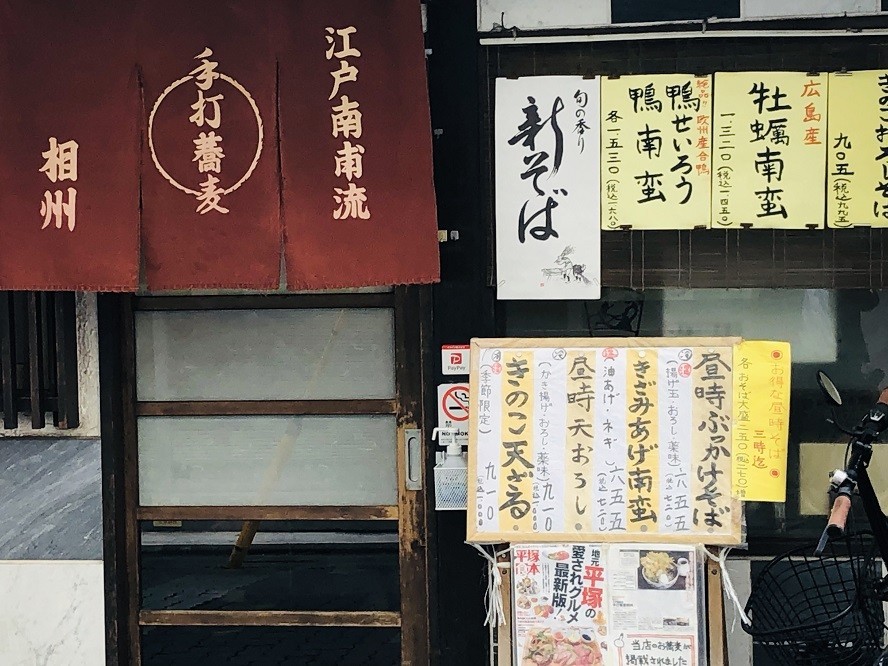 江戸南甫流
手打蕎麦
相州
きのこおろしそば
九〇五(税込九九五)
広島産
牡蠣南蛮
一、三二〇(税込一四五〇)
絶品!!欧州産合鴨
鴨せいろう
鴨南蛮
各一、五三〇(税込一六八〇)
旬の香り
新そば
お得な昼時そば
三時迄
各おそば大盛二五〇(税込二七〇)増
昼時ぶっかけそば
(揚げ玉・おろし・薬味)六五五
きざみあげ南蛮
(油あげ・ネギ)六五五
昼時天おろし
(かき揚げ・おろし・薬味)九一〇
きのこ天ざる
(季節限定)九一〇
PayPay
地元平塚の
愛されグルメ
最新版!
平塚
食本
当店のお蕎麦が
掲載されました